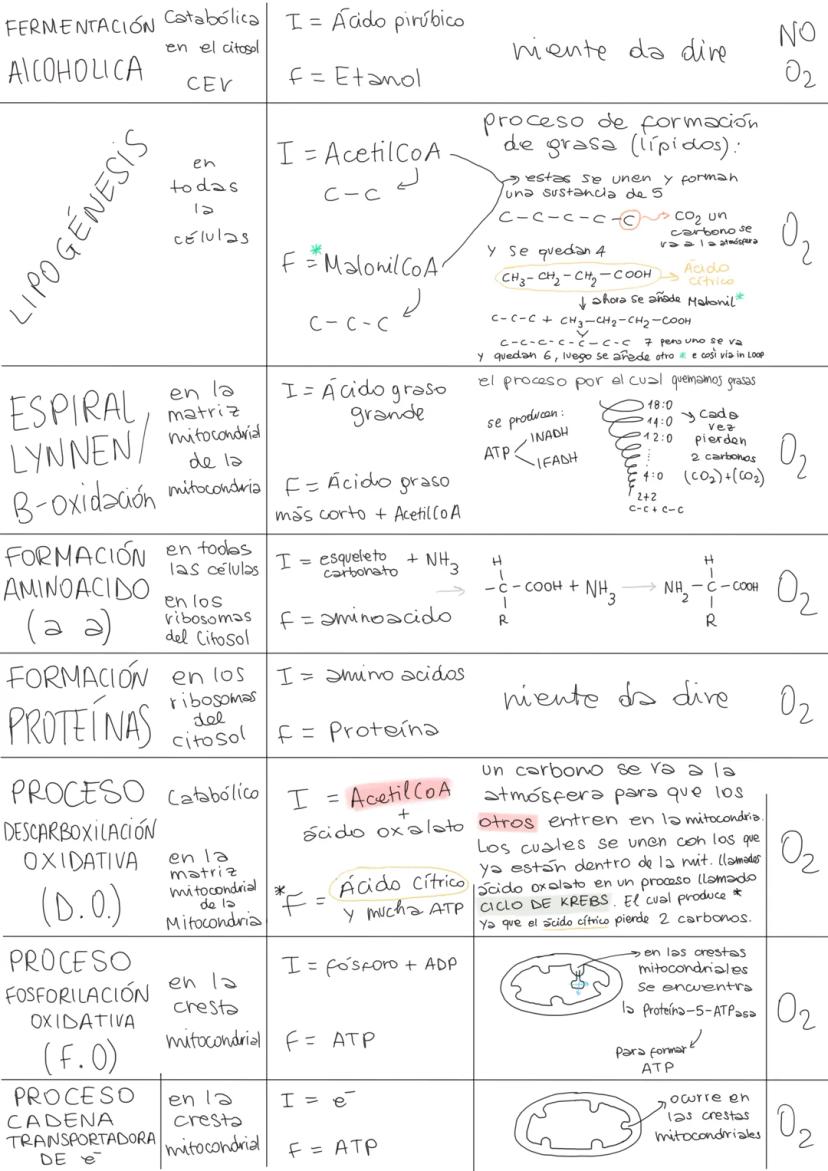 FERMENTACIÓN
AlCOHOLICA
Catabólica
en el citosol
CEV
I = Ácido pirúbico
F = Etanol
niente da dire
NO
O2
LIPOGÉNESIS
en
todas
la
células
I = AcetilCoA
C-C
F =* MalonilCoA
C-C-C
proceso de formación
de grasa (lípidos):
→ estas se unen y forman
una sustancia de 5
C-C-C-C-C → CO2 un
carbono se
va a la atmósfera
y se quedan 4
CH3-CH2-CH2-COOH → Ácido
cítrico
↓ ahora se añade Malonil*
C-C-C + CH3-CH2-CH2-COOH
C-C-C-C-C-C-C 7 pero uno se va
y quedan 6, luego se añade otro * e così via in LOOP
O2
ESPIRAL
LYNNEN/
B-oxidación
en la
matriz
mitocondrial
de la
mitocondria
I = Ácido graso
grande
F = Ácido graso
más corto + AcetilCoA
el proceso por el cual quemamos grasas
se producen:
ATP
1NADH
1FADH
18:0
14:0
12:0
4:0
2+2
C-C+C-C
Cada
vez
pierden
2 carbonos
(CO2)+(CO2)
O2
FORMACIÓN
AMINOACIDO
(a a)
en todas
las células
en los
ribosomas
del Citosol
I = esqueleto + NH3
carbonato
→
F = aminoacido
H
-C-COOH + NH3 → NH2-C-COOH
R
H
R
O2
FORMACIÓN
PROTEÍNAS
en los
ribosomas
del
citosol
I = amino acidos
F = Proteína
niente da dire
O2
PROCESO
DESCARBOXILACIÓN
OXIDATIVA
(D.O.)
Catabólico
en la
matriz
mitocondrial
de la
Mitocondria
I = AcetilCoA
+
ácido oxalato
*F = Ácido Cítrico
y mucha ATP
un carbono se va a la
atmósfera para que los
otros entren en la mitocondria.
Los cuales se unen con los que
ya están dentro de la mit. llamados
ácido oxalato en un proceso llamado
CICLO DE KREBS. El cual produce *
ya que el ácido cítrico pierde 2 carbonos.
O2
PROCESO
FOSFORILACIÓN
OXIDATIVA
(F.O)
en la
cresta
mitocondrial
I = fósforo + ADP
F = ATP
→ en las crestas
mitocondriales
se encuentra
la Proteína-5-ATPasa
para formar
ATP
O2
PROCESO
CADENA
TRANSPORTADORA
DE e-
en la
cresta
mitocondrial
I = e-
F = ATP
→ ocurre en
las crestas
mitocondriales
O2